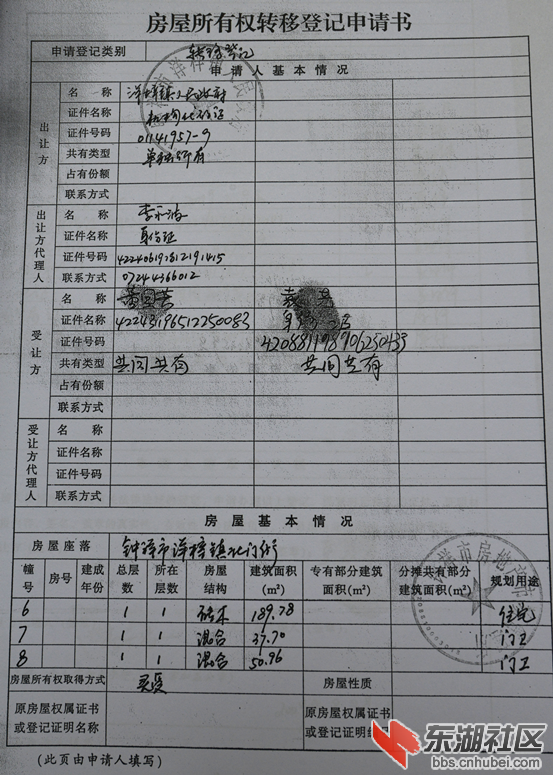 房屋所有权转移登记申请书
申请登记类别 转移登记
申请人基本情况
出让方
名 称 洋梓镇人民政府
证件名称 机构代码证
证件号码 01141957-9
共有类型 单独所有
占有份额
联系方式
出让方代理人
名 称
证件名称 身份证
证件号码
联系方式 07244366012
受让方
名 称
证件名称
证件号码
共有类型 共同共有 共同共有
占有份额
联系方式
受让方代理人
名 称
证件名称
证件号码
联系方式
房屋基本情况
房屋座落 钟祥市洋梓镇北门街
幢号 房号 建成年份 总层数 所在层数 房屋结构 建筑面积(m²) 专有部分建筑面积(m²) 分摊共有部分建筑面积(m²) 规划用途
6 1 1 砖木 189.78 住宅
7 1 1 混合 37.70 门卫
8 1 1 混合 50.96 门卫
房屋所有权取得方式 买受 房屋性质
原房屋权属证书或登记证明名称 原房屋权属证书或登记证明
(此页由申请人填写)
东湖社区
bbs.cnhubei.com